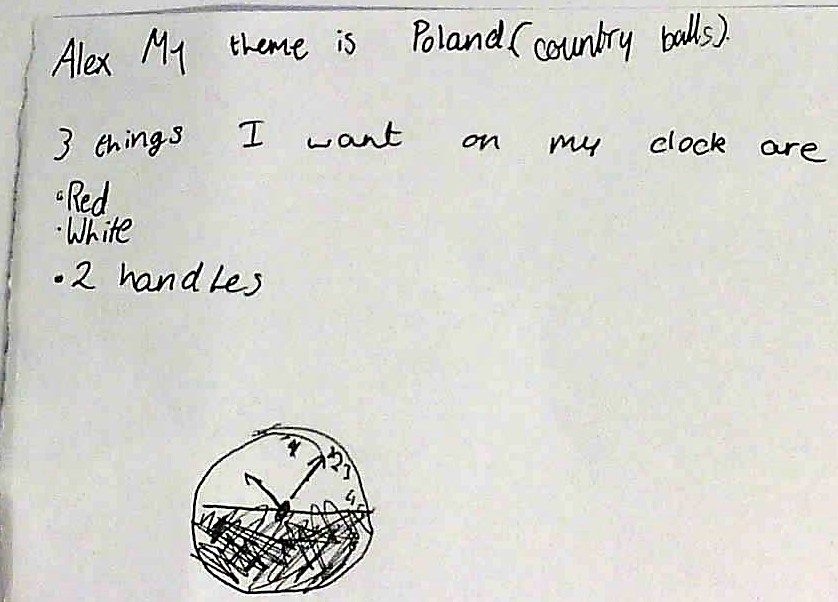 Alex My theme is Poland (country balls).
3 things I want on my clock are
• Red
• White
• 2 handles
2 3
4